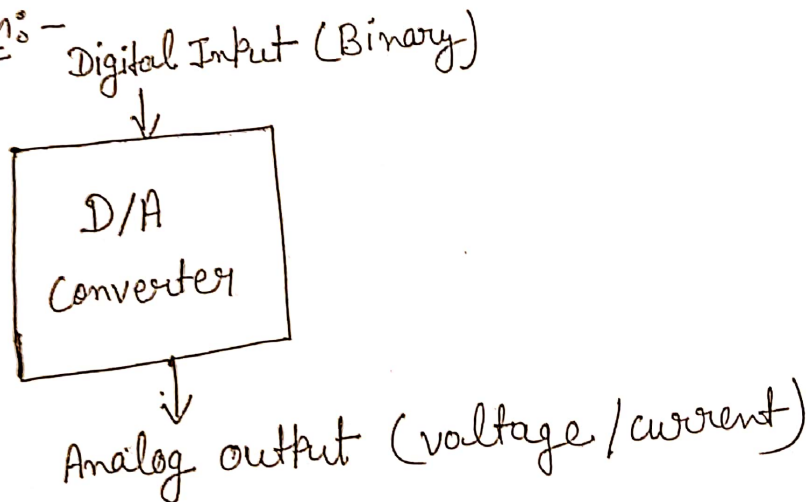 Digital Input (Binary)
D/A
Converter
Analog output (voltage/current)